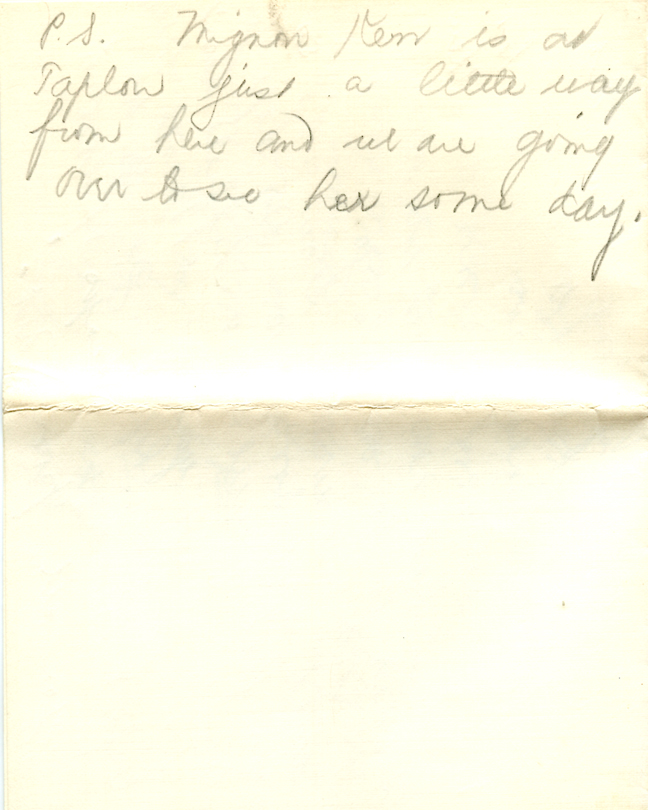 P.S. Mignon Kerr is at
Taplow just a little way
from here and we are going
over to see her some day.